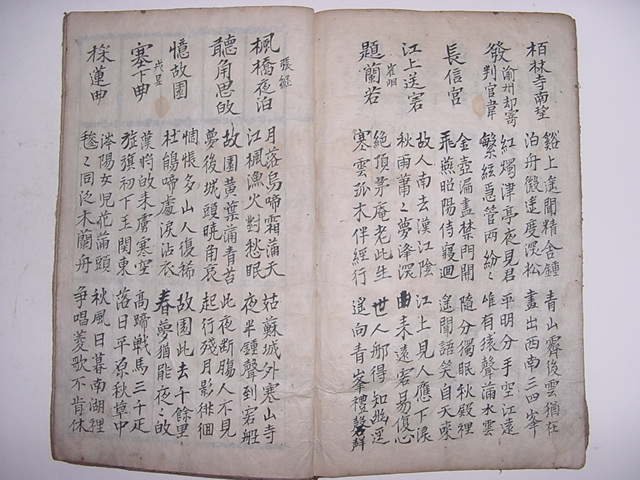 栢林寺南望
谿上遙聞精舍鍾 青山霽後雲猶在
泊舟微逕度深松 畫出西南三四峯
發渝州却寄
判官韋
紅燭津亭夜見君 平明分手空江遠
繁絃急管兩紛々 唯有猿聲滿水雲
長信宮
金壺漏盡禁門開 隨分獨眠秋殿裡
飛燕昭陽侍寢迴 遙聞語笑自天來
江上送客
崔峒
故人南去漢江陰 江上見人應下淚
秋雨蕭々夢澤深 由來遠客易傷心
題蘭若
絕頂茅庵老此生 世人那得知幽逕
寒雲孤木伴經行 遙向青峯禮磬聲
張継
楓橋夜泊
月落烏啼霜滿天 姑蘇城外寒山寺
江楓漁火對愁眠 夜半鍾聲到客船
聽角思歸
故園黃葉滿青苔 此夜断腸人不見
夢後城頭曉角哀 起行殘月影徘徊
憶故園
惆悵多山人復稀 故園此去千餘里
杜鵑啼處淚沾衣 春夢猶能夜々歸
戎昱
塞下曲
漢將歸來虜塞空 高蹄戰馬三千疋
旌旗初下玉關東 落日平原秋草中
採蓮曲
涔陽女兒花滿頭 秋風日暮南湖裡
毿々同泛木蘭舟 争唱菱歌不肯休